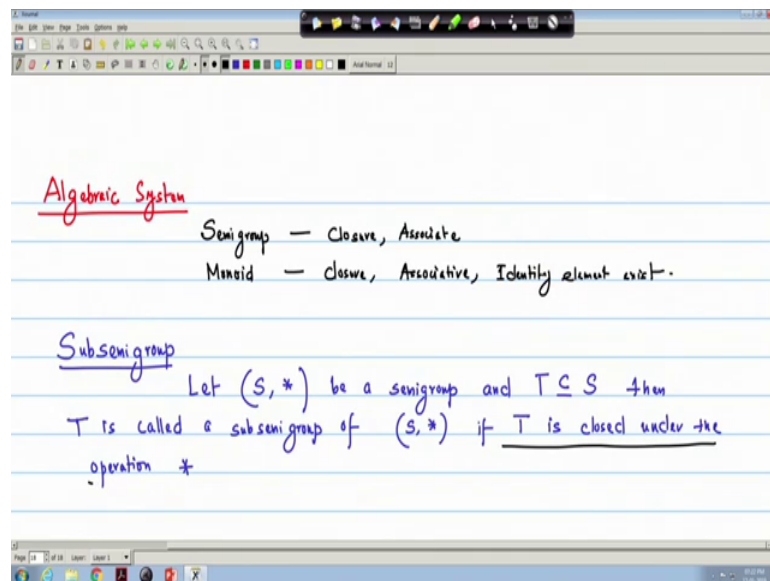 Journal
File Edit View Page Tools Options Help
Arial Normal 12
Algebraic System
Semigroup — Closure, Associate
Monoid — closure, Associative, Identity element exist.
Subsemigroup
Let (S, *) be a semigroup and T ⊆ S then
T is called a subsemigroup of (S, *) if T is closed under the
operation *
Page 18 of 18 Layer: Layer 1